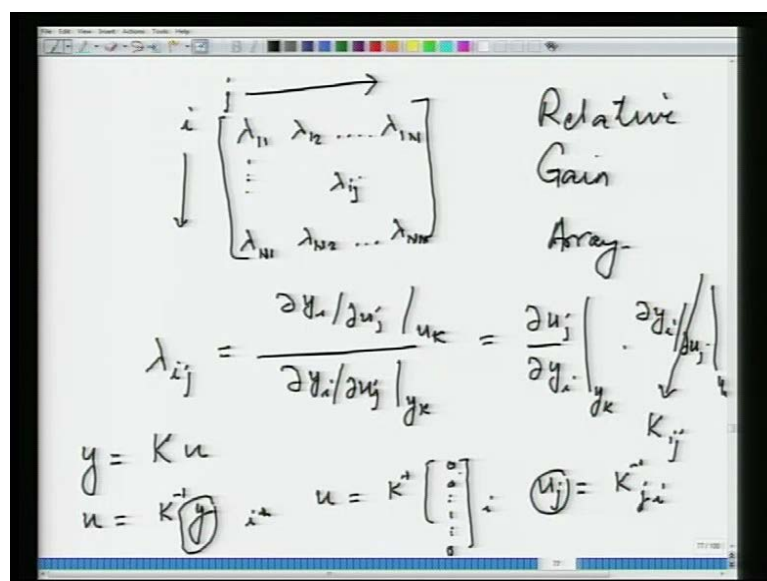 File Edit View Insert Actions Tools Help
j →
i ↓
[ λ11 λ12 ..... λ1N
⋮ λij
λN1 λN2 ... λNN ]
Relative
Gain
Array
λij = ∂yi/∂uj |uK / ∂yi/∂uj |yK = ∂uj/∂yi |yK · ∂yi/∂uj |
Kij
y = K u
u = K⁻¹ y
u = K⁻¹ [ 0 0 : 1 : 0 ] i
uj = K⁻¹ji
77 / 100